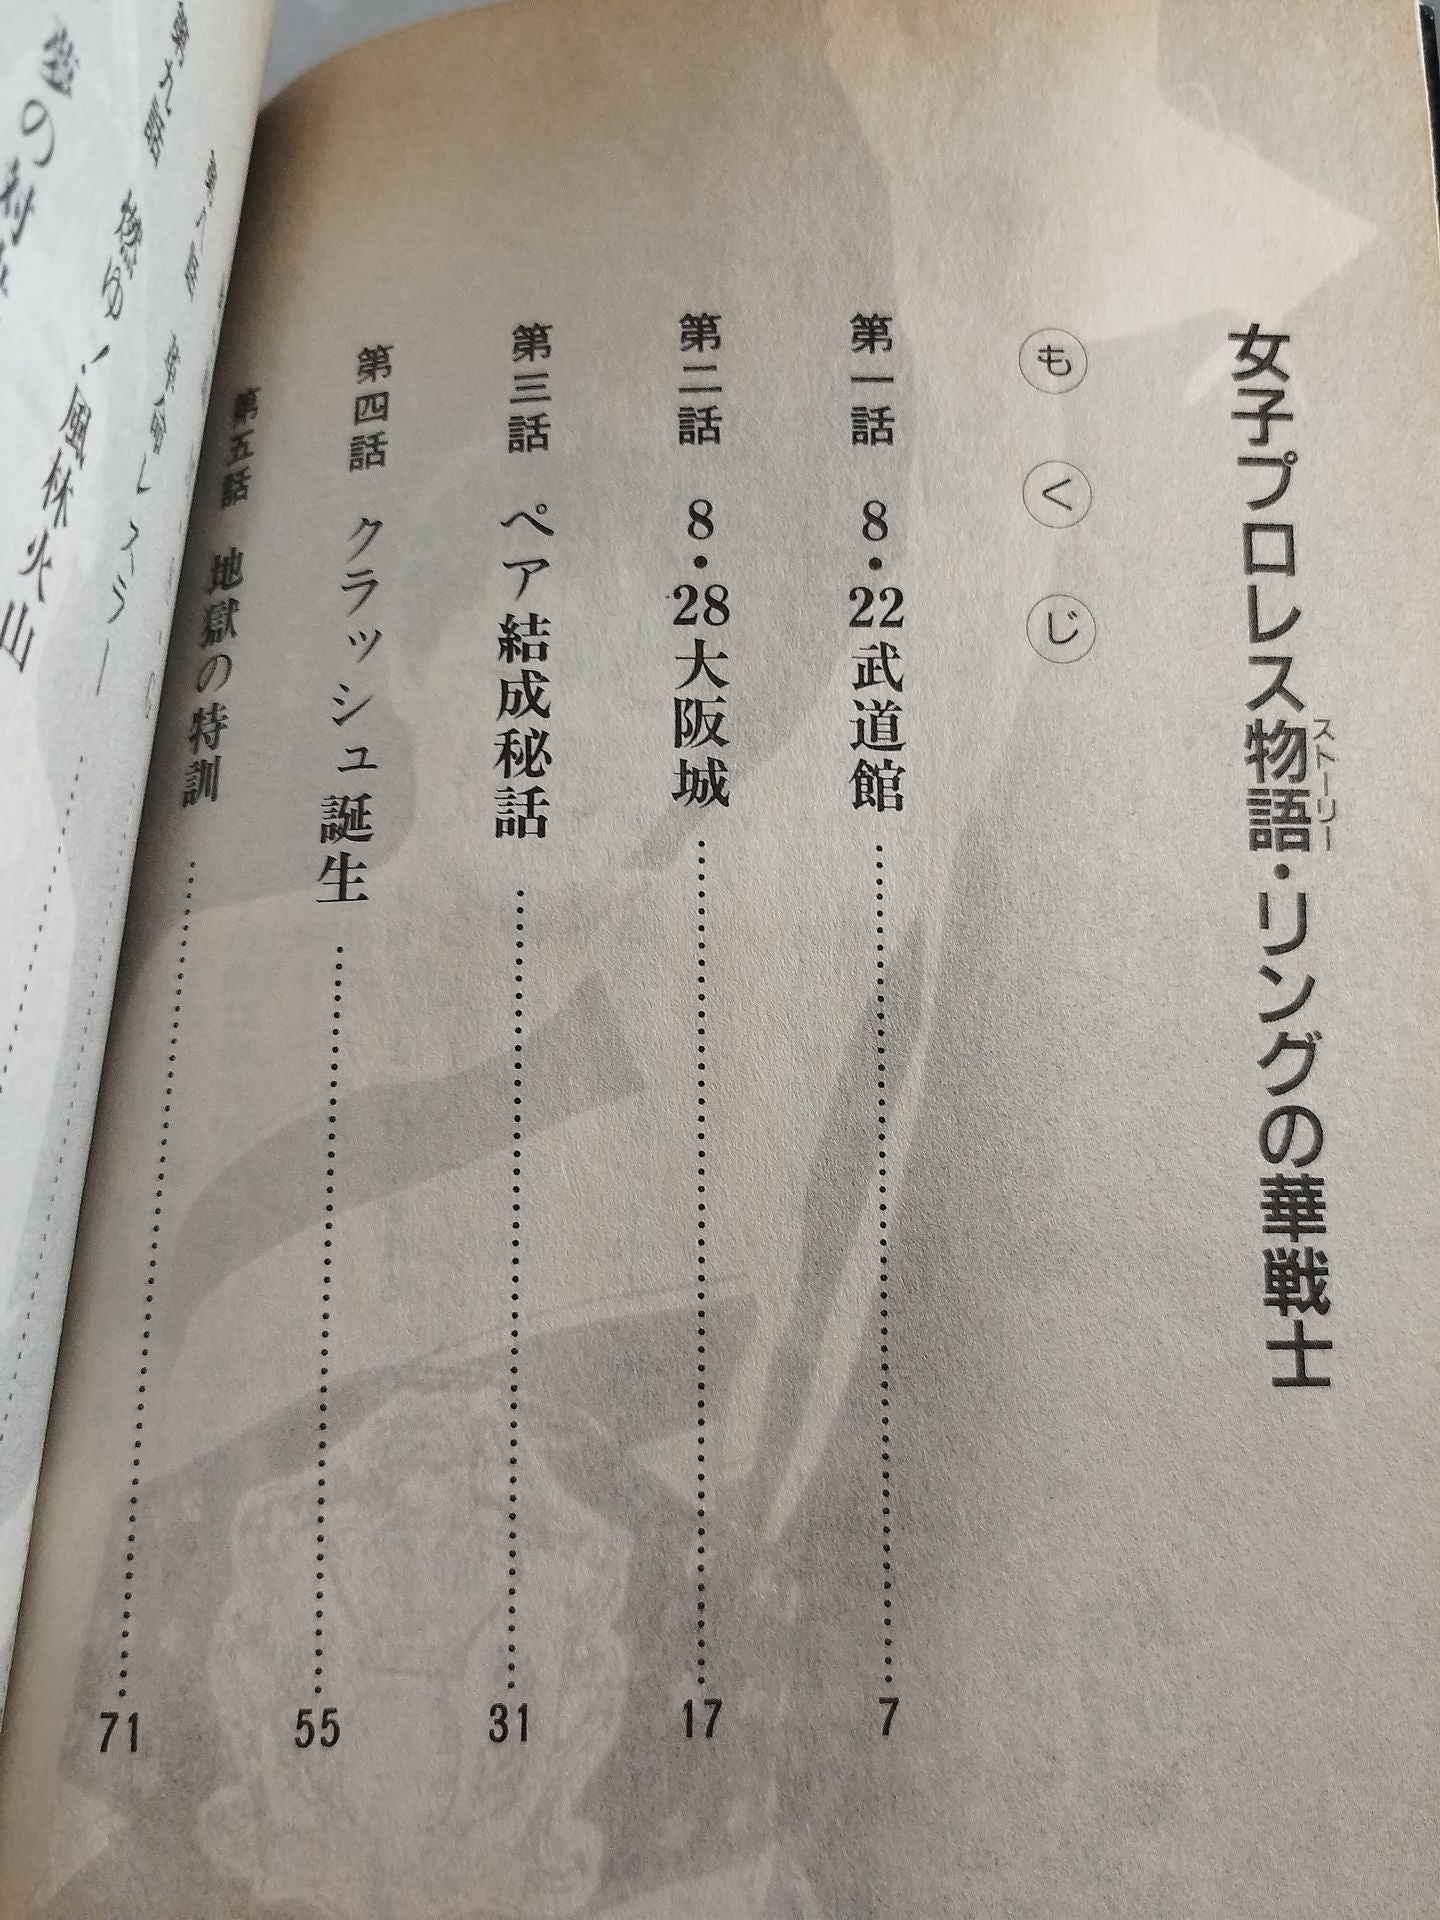 女子プロレス物語・リングの華戦士
ストーリー
もくじ
第一話 8・22武道館 7
第二話 8・28大阪城 17
第三話 ペア結成秘話 31
第四話 クラッシュ誕生 55
第五話 地獄の特訓 71
レスラー
第九話 燃ゆ!風林火山
の対